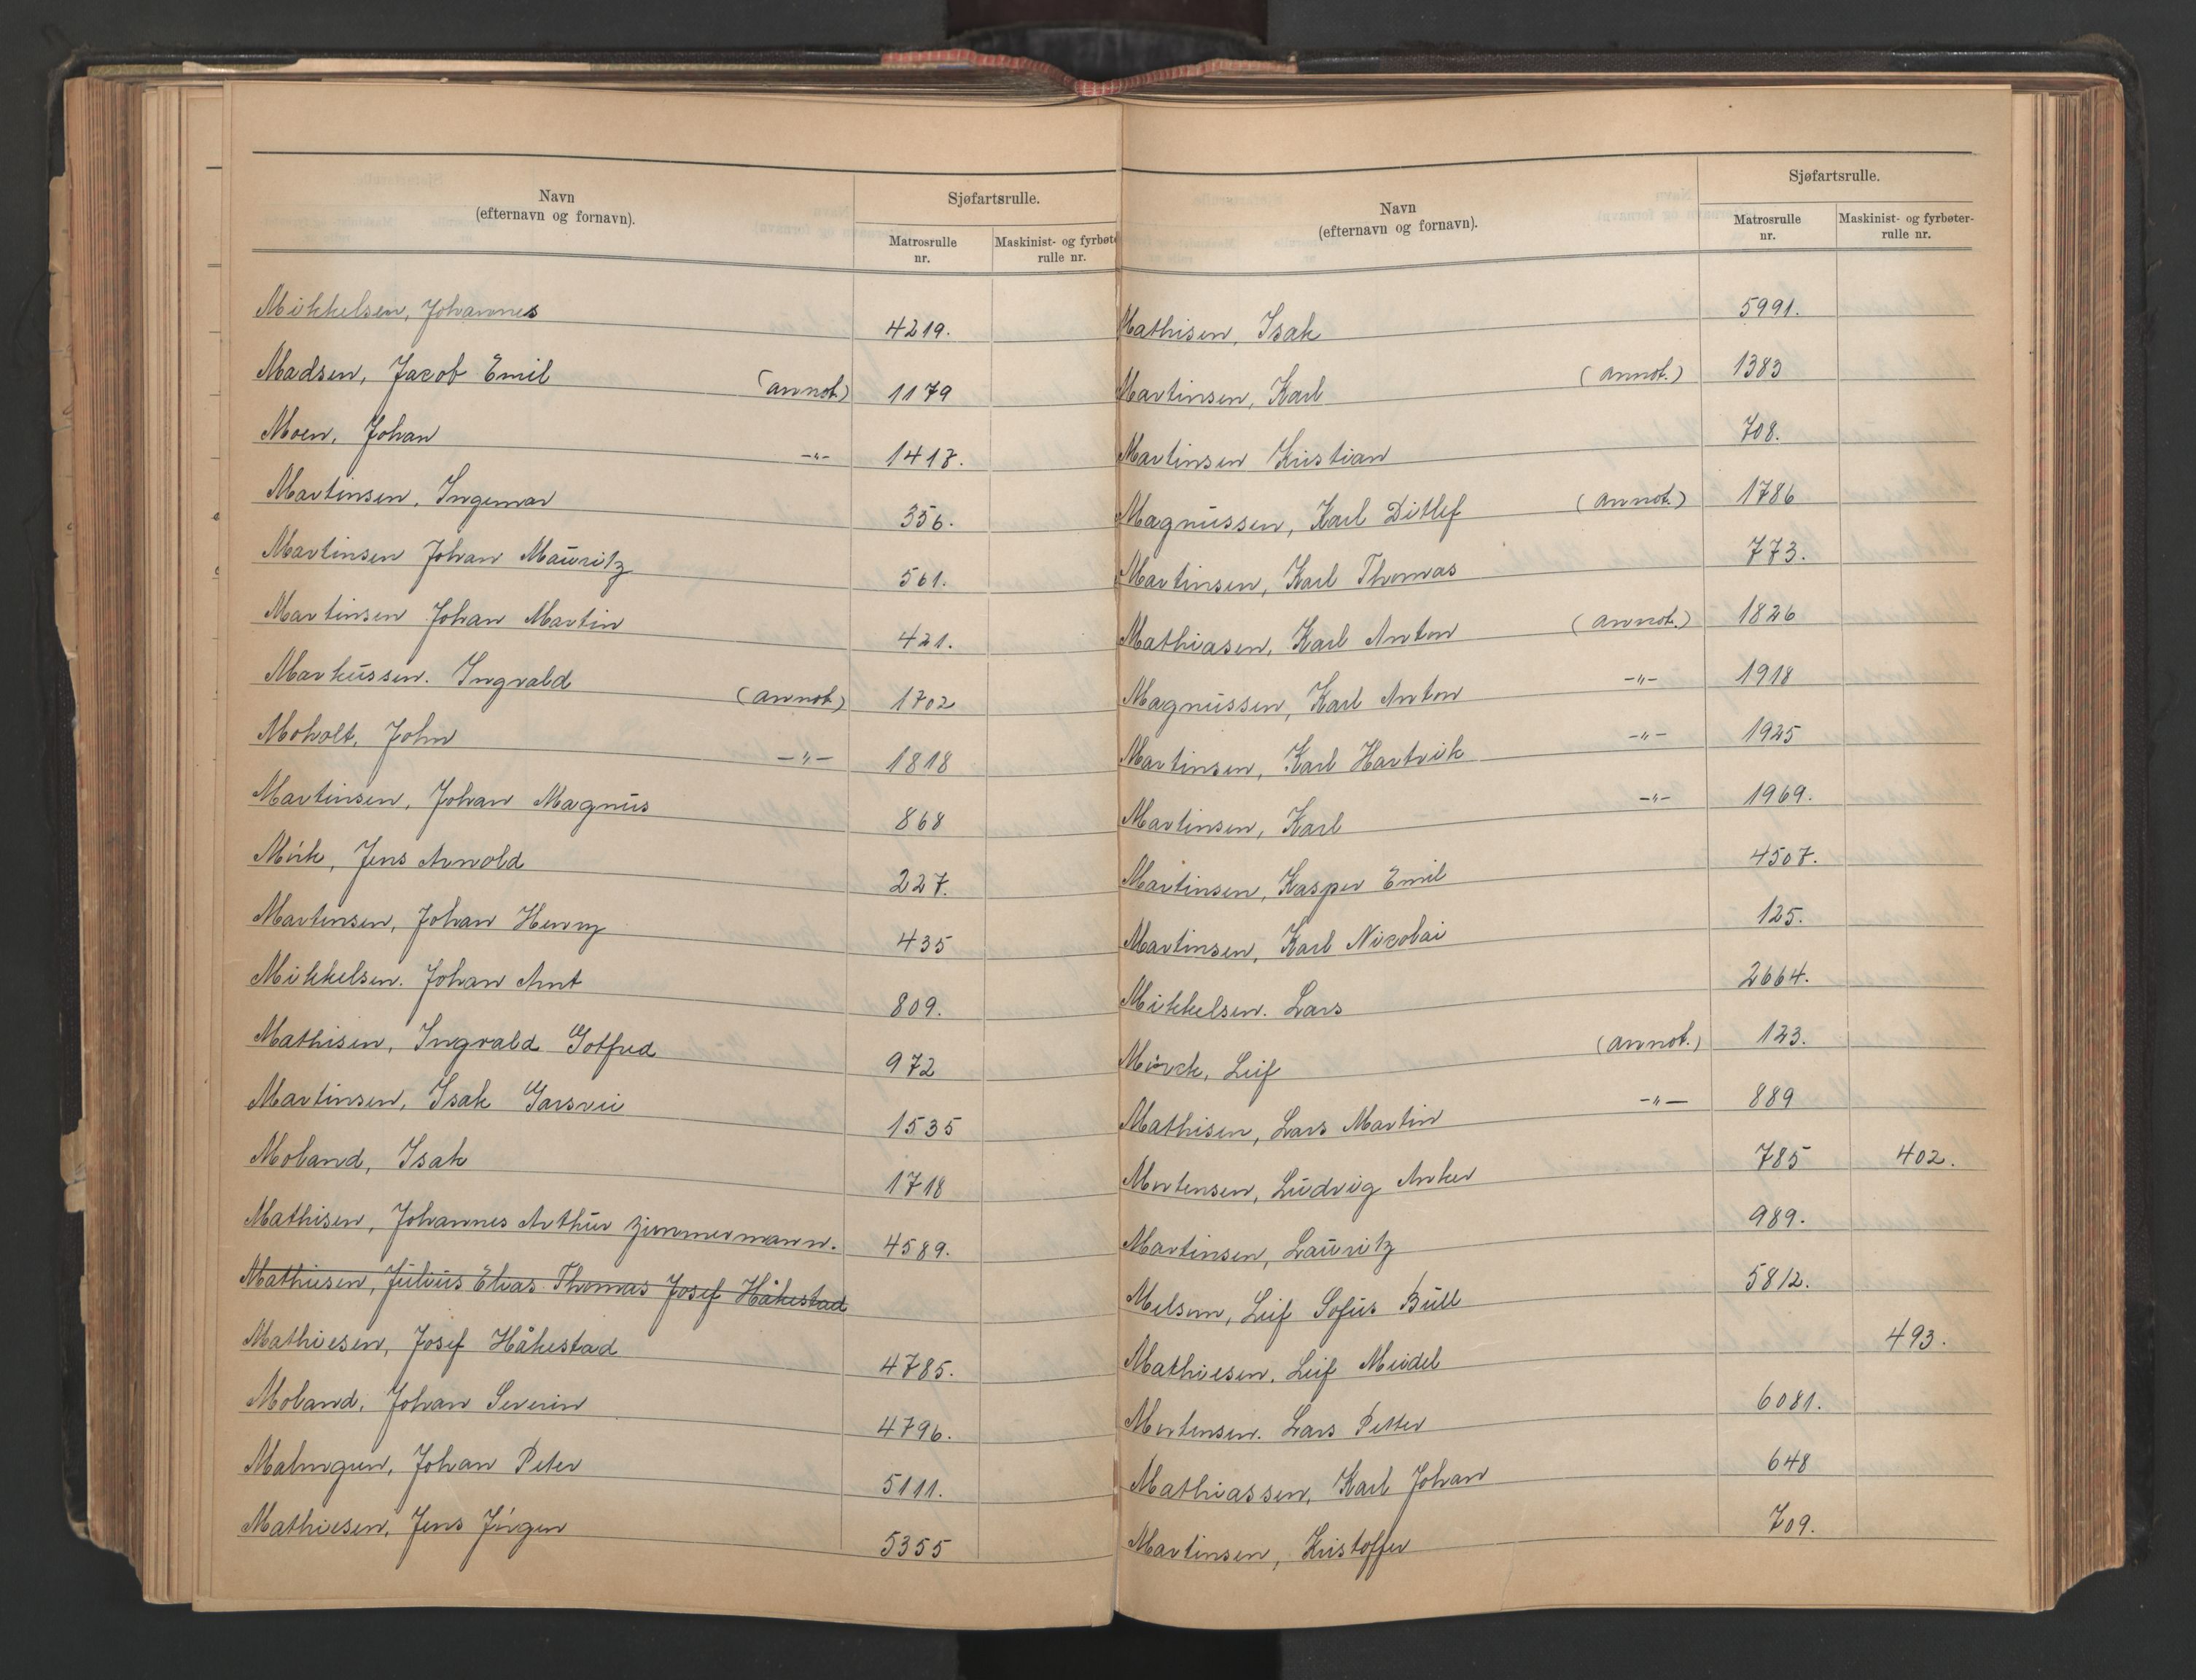 Navn
(efternavn og fornavn).
Sjøfartsrulle.
Matrosrulle nr.
Maskinist- og fyrbøt rulle nr.
Mikkelsen, Johannes 4219.
Madsen, Jacob Emil (annot) 1179
Moen, Johan -"- 1417.
Martinsen, Ingemar 356.
Martinsen Johan Mauritz 561.
Martinsen Johan Martin 421.
Markussen. Ingvald (annot) 1702
Moholt, John -"- 1818
Martinsen, Johan Magnus 868
Mørk, Jens Arnold 227.
Martinsen, Johan Henry 435
Mikkelsen. Johan Arnt 809.
Mathisen, Ingvald Gotfred 972
Martinsen, Isak 1535
Moland, Isak 1718
Mathisen, Johannes Arthur Zimmermann. 4589.
Mathiesen, Julius Elias Thomas Josef Håkestad
Mathiesen, Josef Håkestad 4785.
Moland, Johan Severin 4796.
Malmgren, Johan Peter 5111.
Mathiesen, Jens Jørgen 5355
Navn
(efternavn og fornavn).
Sjøfartsrulle.
Matrosrulle nr.
Maskinist- og fyrbøter- rulle nr.
Mathisen, Isak 5991.
Martinsen, Karl (annot.) 1383
Martinsen Kristian 708.
Magnussen, Karl Ditlef (annot.) 1786
Martinsen, Karl Thomas 773.
Mathiasen, Karl Anton (annot.) 1826
Magnussen, Karl Anton -"- 1918
Martinsen, Karl Hartvik -"- 1925
Martinsen, Karl -"- 1969.
Martinsen, Kasper Emil 4507.
Martinsen, Karl Nicolai 125.
Mikkelsen. Lars 2664.
Mørck, Leif (annot.) 123.
Mathisen, Lars Martin -"- 889
Mortensen, Ludvig Anker 785 402.
Martinsen, Lauritz 989.
Melsom, Leif Sofus Bull 5812.
Mathiesen, Leif Meidel 493.
Mortensen. Lars Petter 6081.
Mathiassen, Karl Johan 648
Martinsen, Kristoffer 709.